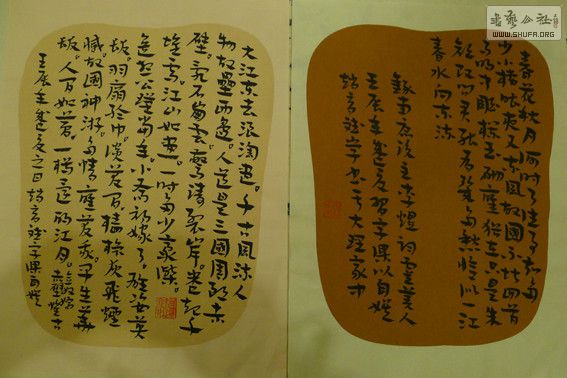 書藝公社
WWW.SHUFA.ORG
春花秋月何时了往事知多
少小楼昨夜又东风故国不堪回首
月明中雕栏玉砌应犹在只是朱
颜改问君能有几多愁恰似一江
春水向东流
录南唐后主李煜词虞美人
壬辰年夏习字果以自娱
大江东去浪淘尽。千古风流人
物故垒西边。人道是三国周郎赤
壁。乱石崩云惊涛裂岸。卷起千
堆雪。江山如画。一时多少豪杰。
遥想公瑾当年。小乔初嫁了。雄姿英
发。羽扇纶巾。谈笑间。樯橹灰飞烟
灭。故国神游。多情应笑我。早生华
发。人间如梦。一樽还酹江月。
壬辰年夏之日